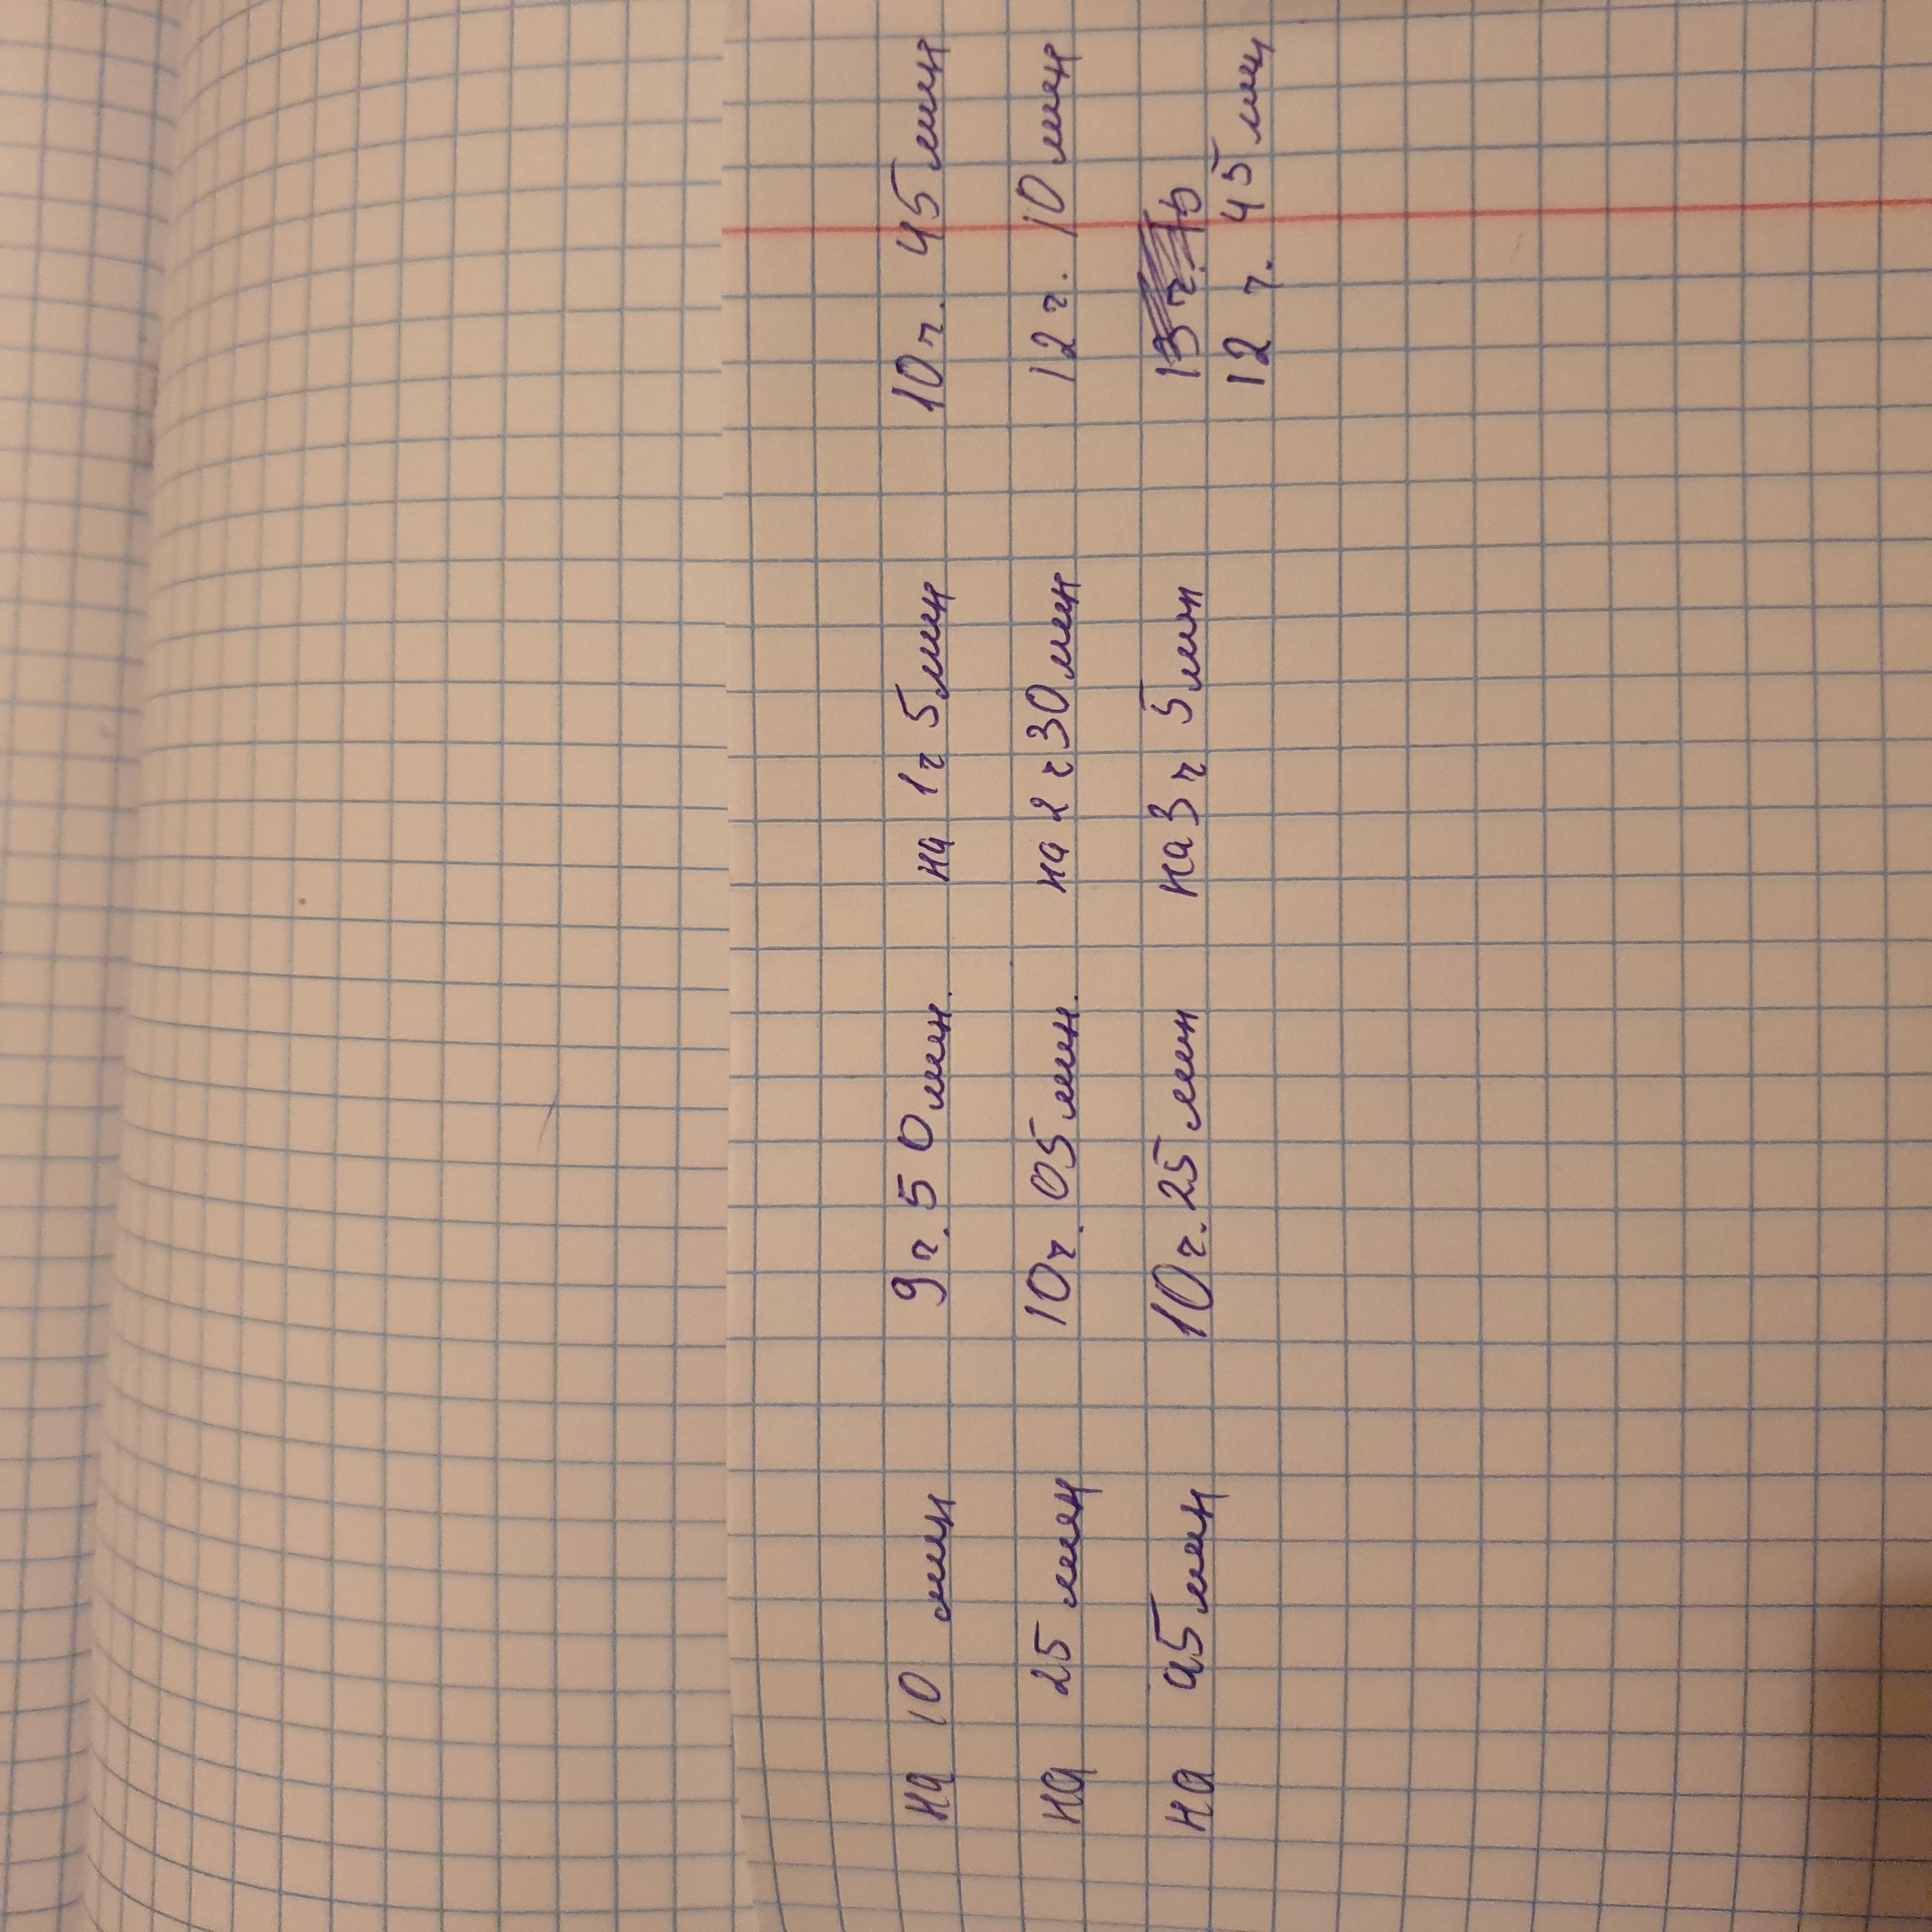 на 10 мин 9 ч. 50 мин. на 1 ч 5 мин 10 ч. 45 мин
на 25 мин 10 ч. 05 мин. на 2 ч 30 мин 12 ч. 10 мин
на 45 мин 10 ч. 25 мин на 3 ч 5 мин
12 ч. 45 мин